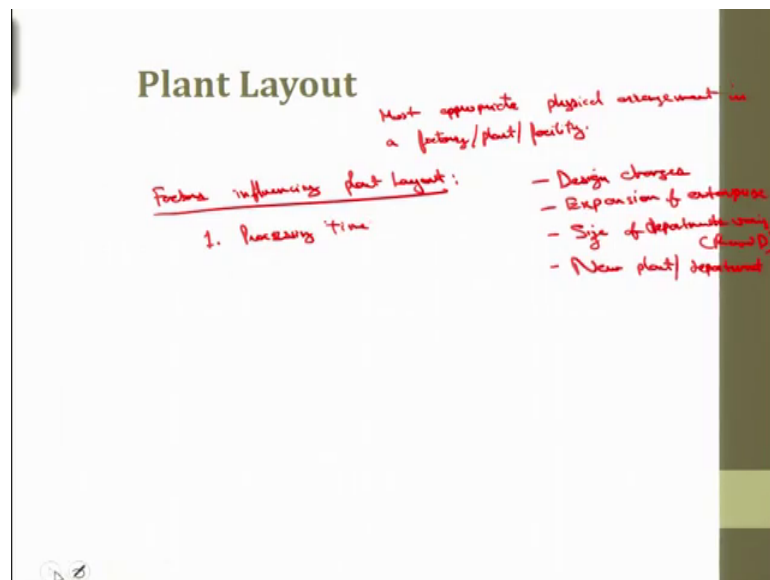 Plant Layout
Most appropriate physical arrangement in
a factory/plant/facility.
Factors influencing plant Layout:
1. Processing time
- Design changes
- Expansion of enterprise
- Size of departments
- New plant/department